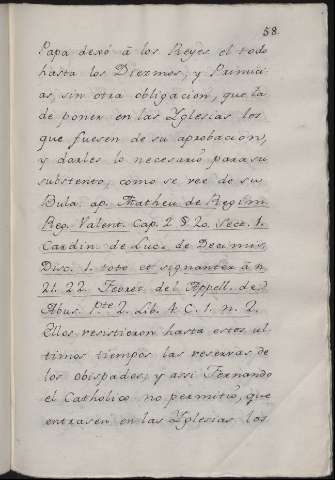 58.
Papa dexó á los Reyes el todo
hasta los Diezmos, y Primici-
as, sin otra obligacion, que la
de poner en las Yglesias los
que fuesen de su aprobacion,
y darles lo necesario para su
substento, como se vee de su
Bula. ap. Matheu de Regimi
Reg. Valent. Cap. 2 § 2o. Sect. 1.
Cardin de Luc. de Decimis,
Disc. 1. toto et signanter â n
21. 22. Feoret del Appell. de
Abus. pte. 2. Lib. 4 C. 1. n. 2.
Ellos resistieron hasta estos ul-
timos tiempos las reservas, de
los obispados, y assi Fernando
el Catholico no permitió, que
entrasen en las Yglesias los